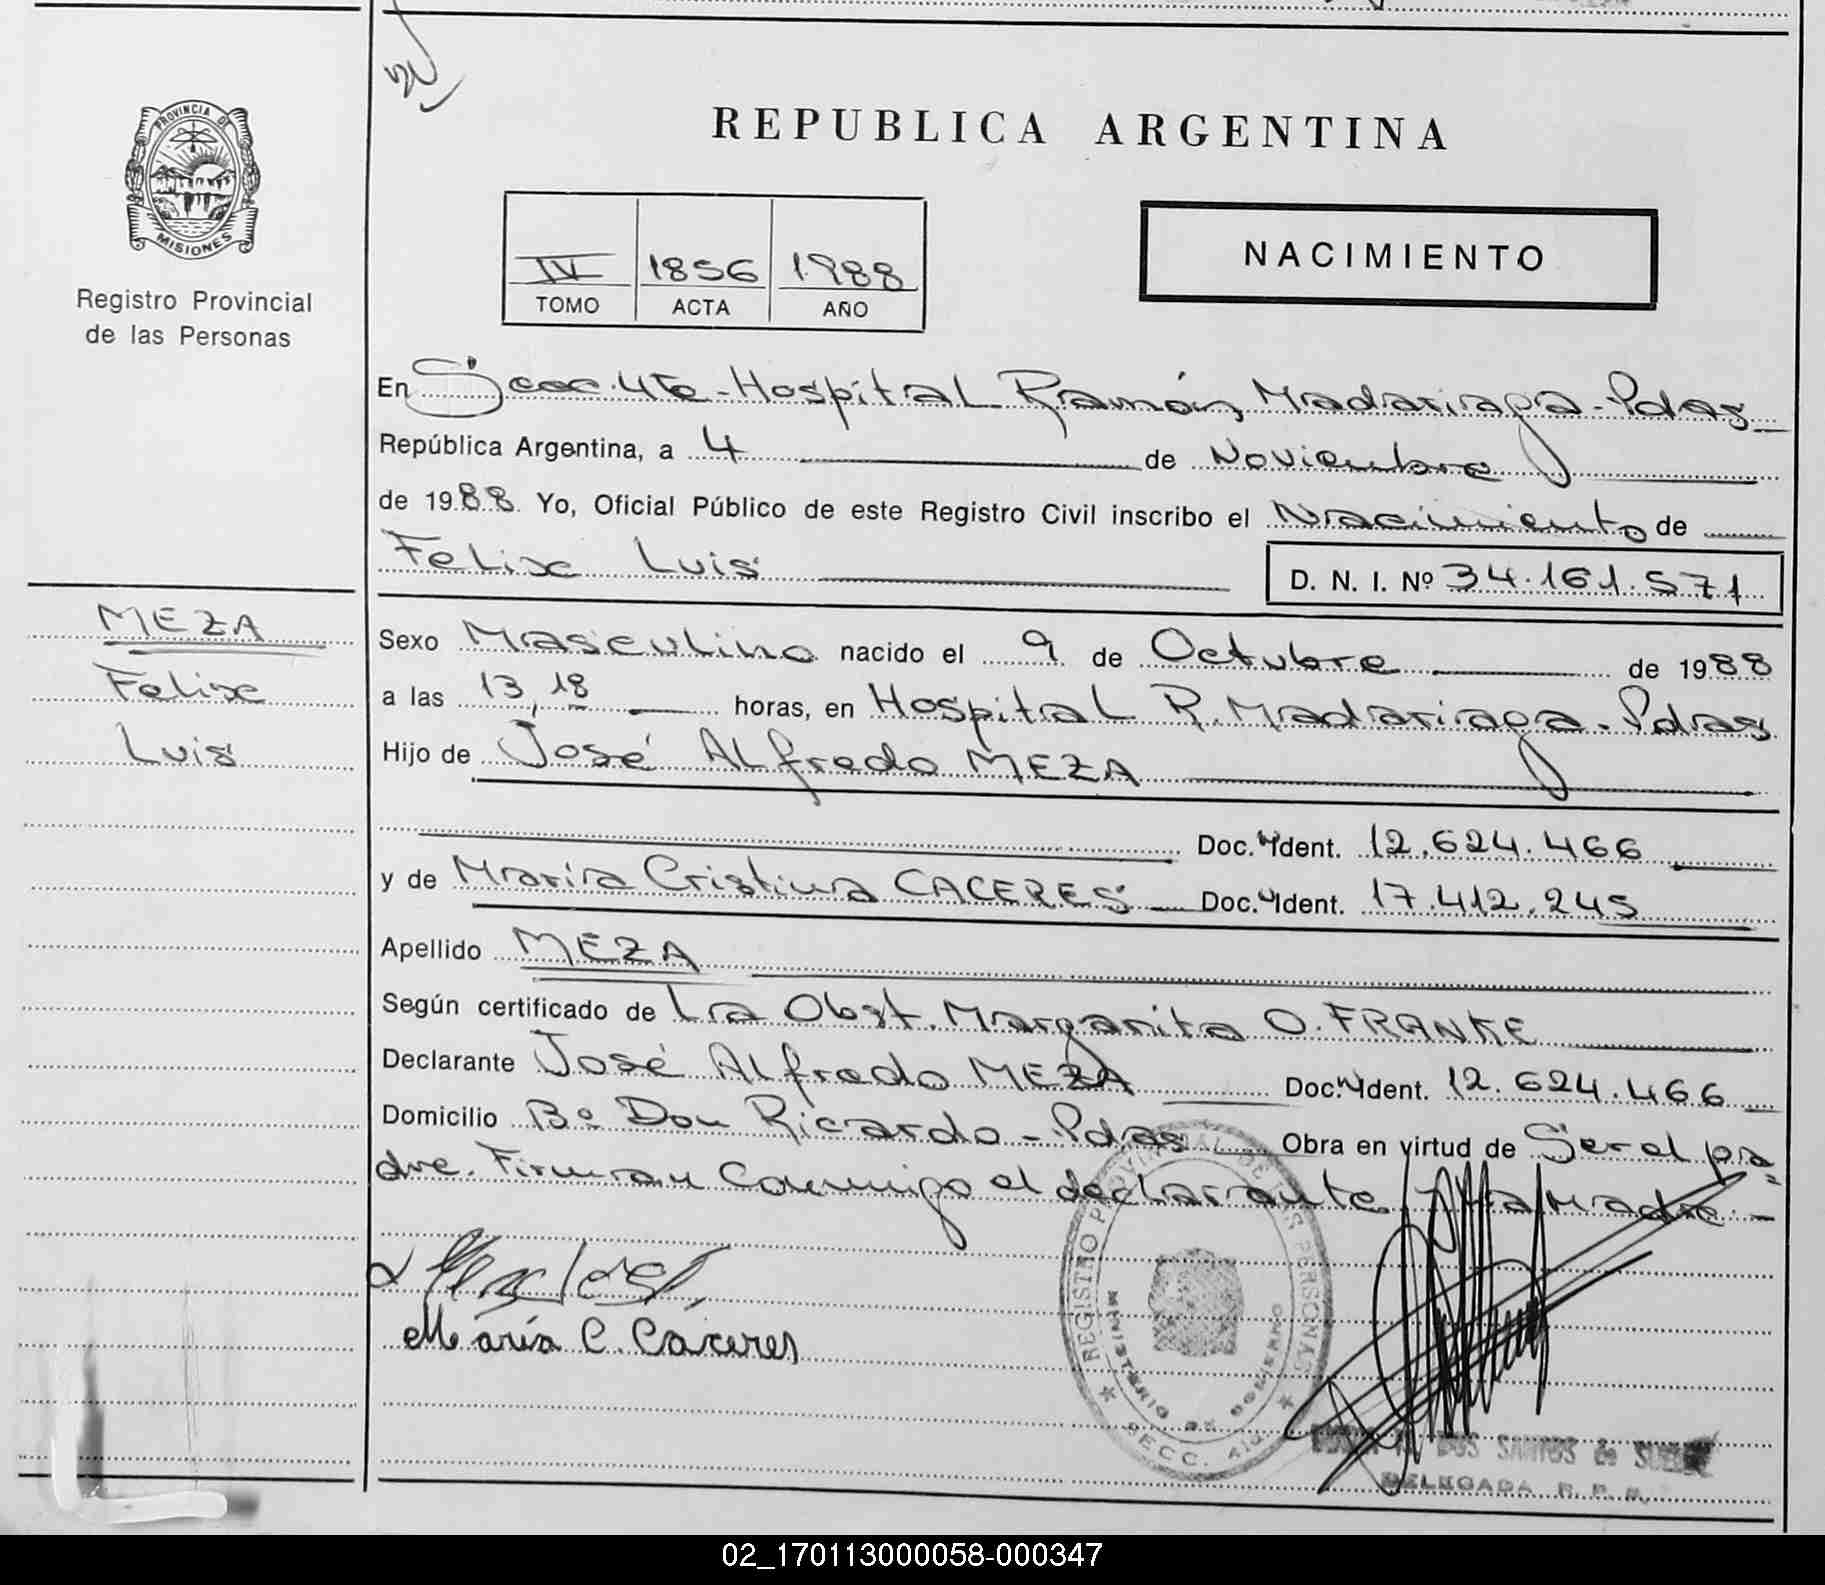 PROVINCIA DE
MISIONES
Registro Provincial
de las Personas
MEZA
Felix
Luis
REPUBLICA ARGENTINA
IV 1856 1988
TOMO ACTA AÑO
NACIMIENTO
En Secc. 4ta - Hospital Ramón Madariaga - Pdas
República Argentina, a 4 de Noviembre
de 1988 Yo, Oficial Público de este Registro Civil inscribo el Nacimiento de
Felix Luis D. N. I. Nº 34.161.571
Sexo Masculino nacido el 9 de Octubre de 1988
a las 13,18 horas, en Hospital R. Madariaga - Pdas
Hijo de José Alfredo MEZA
Doc. Ident. 12.624.466
y de María Cristina CACERES Doc. Ident. 17.412.245
Apellido MEZA
Según certificado de La Obst. Margarita O. FRANKE
Declarante José Alfredo MEZA Doc. Ident. 12.624.466
Domicilio Bº Don Ricardo - Pdas Obra en virtud de Ser el pa=
dre. Firman Conmigo el declarante y la Madre. -
María C. Caceres
REGISTRO PROVINCIAL DE LAS PERSONAS
MINISTERIO DE GOBIERNO
SECC. 4ta
DOS SANTOS de
DELEGADA R. P. P.
02_170113000058-000347